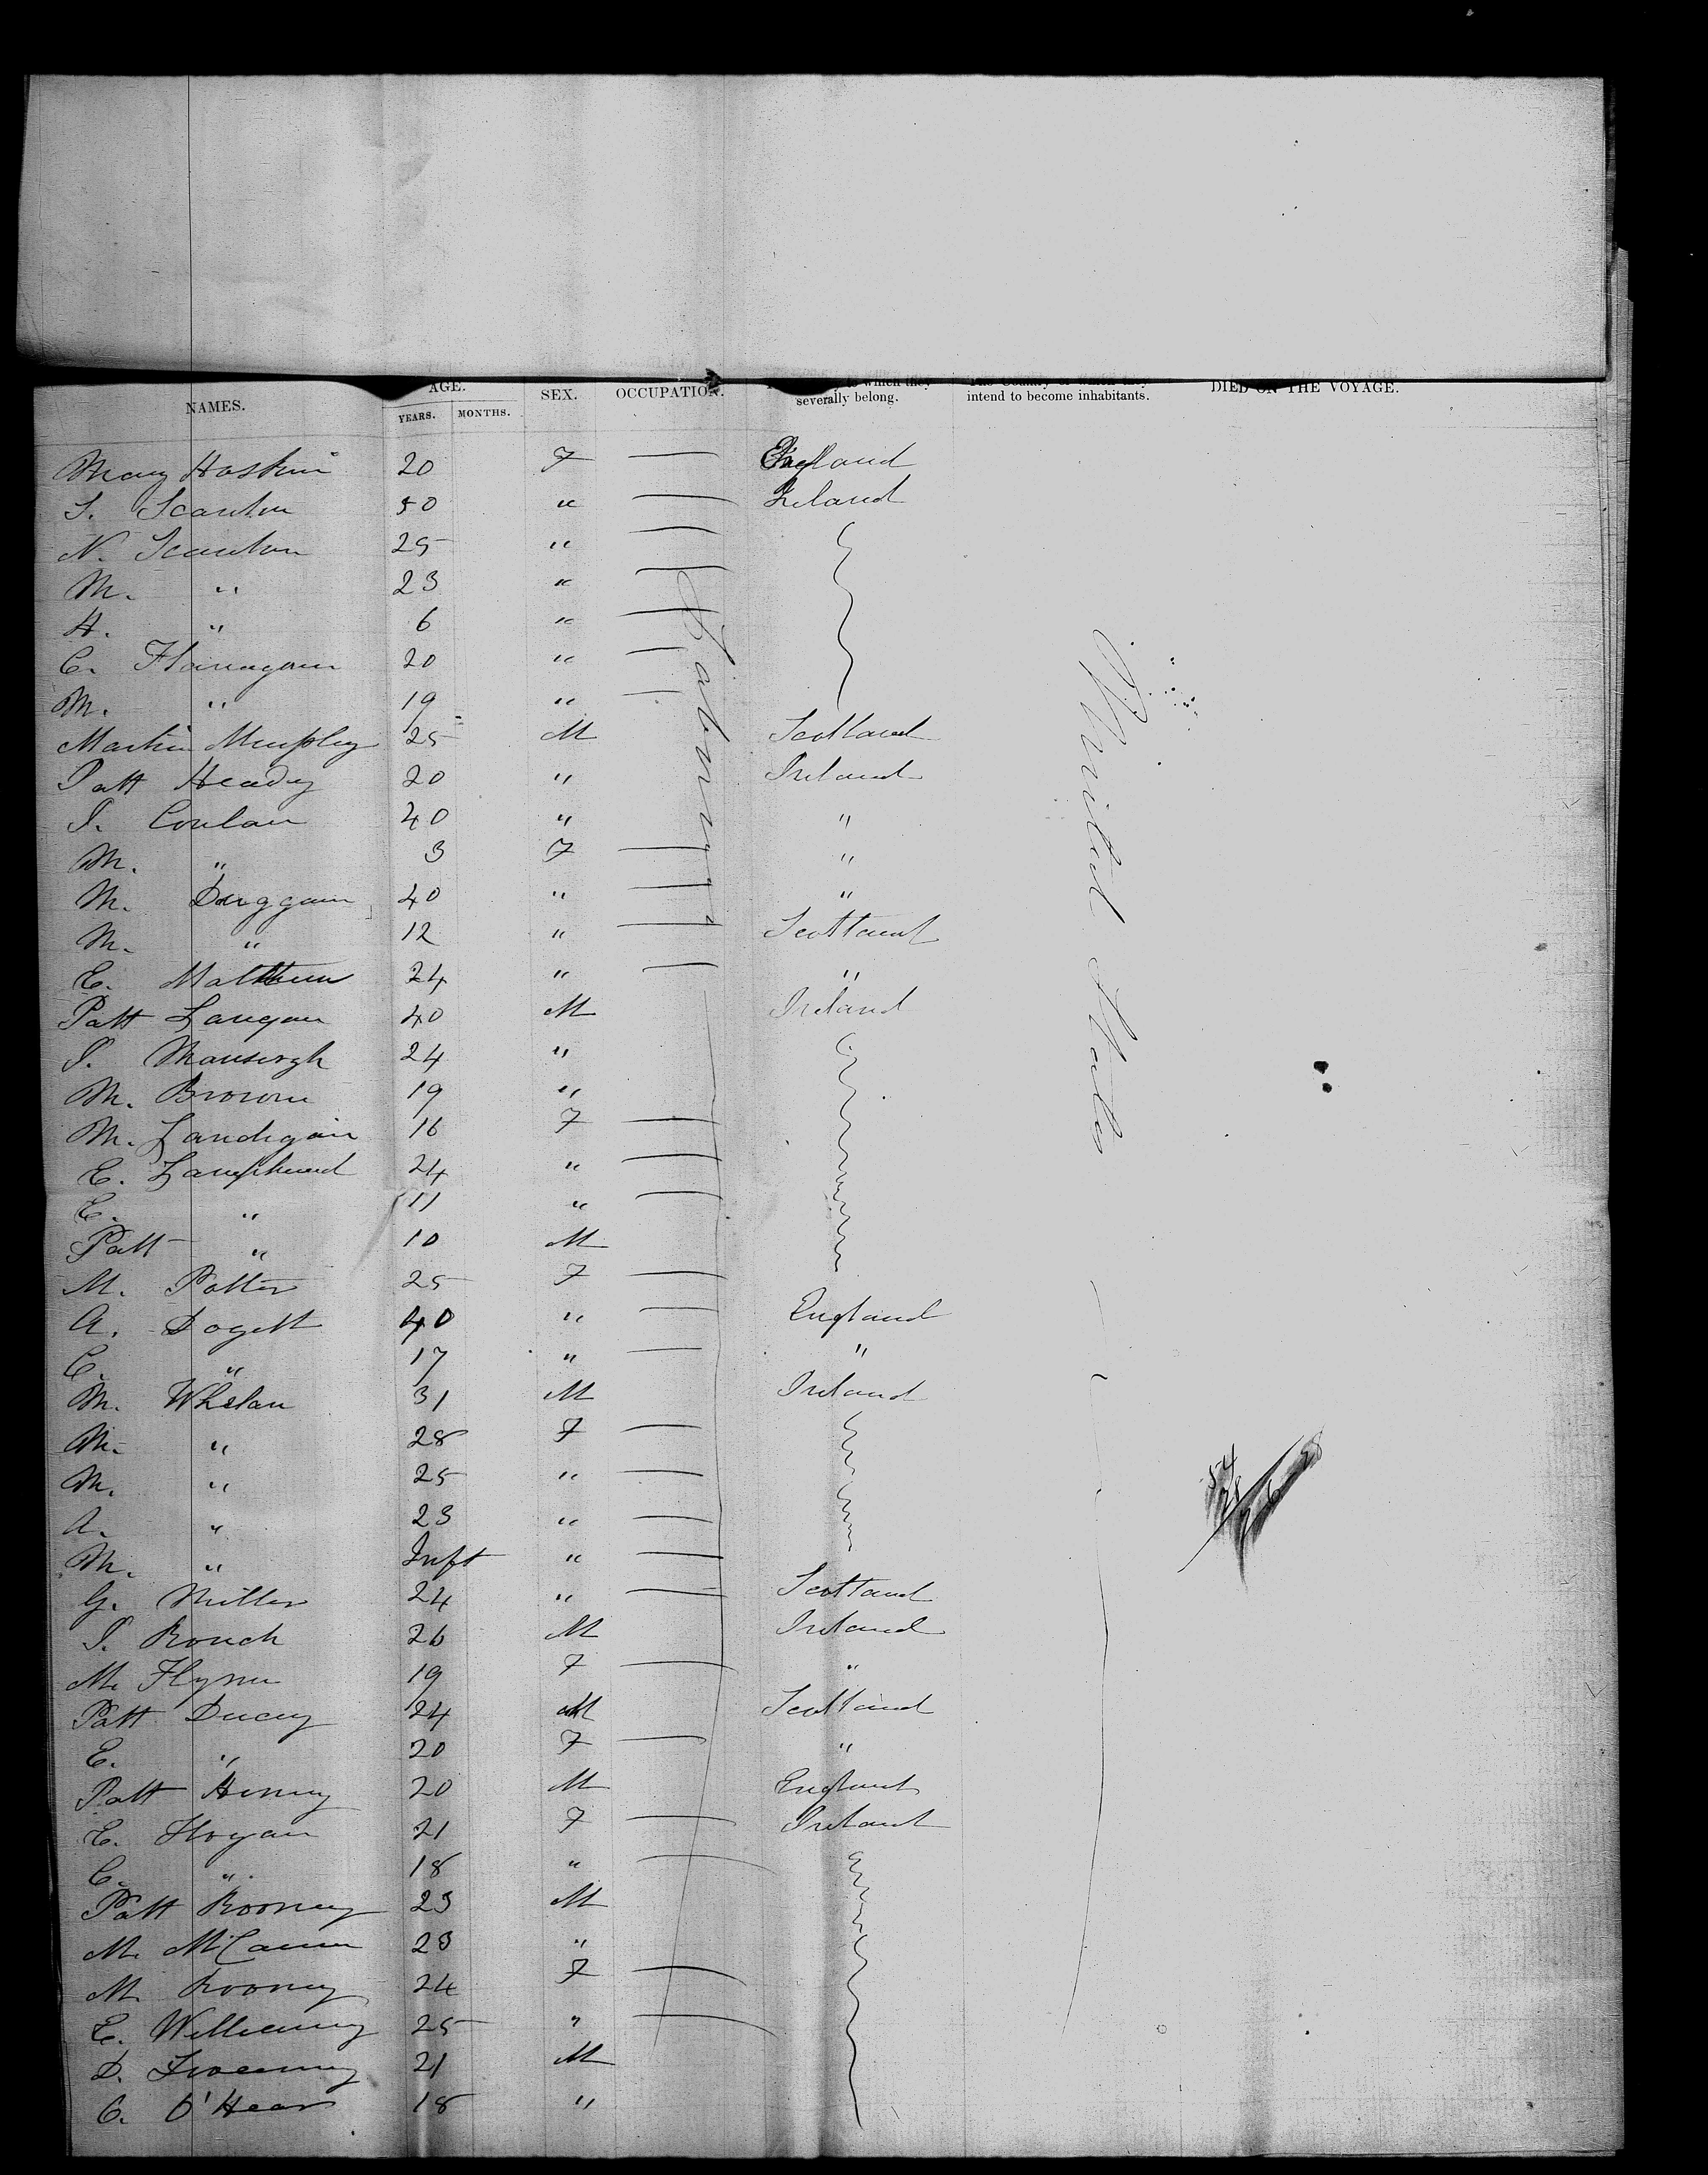 NAMES. AGE. YEARS. MONTHS. SEX. OCCUPATION. to which they severally belong. intend to become inhabitants. DIED ON THE VOYAGE.
Mary Haskin 20 F — England
S. Scanlon 50 " — Ireland
N. Scanlon 25 " —
M. " 23 " —
H. " 6 " —
C. Flanagan 20 " —
M. " 19 " —
Martin Murphy 25 M Scotland
Patt Heady 20 " Ireland
J. Conlan 40 " "
M. " 3 F — "
M. Duggan 40 " — "
M. " 12 " — Scotland
E. Matthew 24 " — "
Patt Langan 40 M Ireland
J. Mansergh 24 "
M. Brown 19 "
M. Landigan 16 F —
E. 24 " —
E. " 11 " —
Patt " 10 M
M. Potter 25 F —
A. Dogett 40 " — England
C. " 17 " — "
M. Whelan 31 M Ireland
M. " 28 F —
M. " 25 " —
A. " 23 " —
M. " Inft " —
G. Miller 24 " — Scotland
J. Rouch 26 M Ireland
M. Flynn 19 F — "
Patt Ducey 24 M Scotland
E. " 20 F — "
Patt Henry 20 M England
E. Hogan 21 F — Ireland
C. " 18 " —
Patt Rooney 23 M
M. McCann 23 "
M. Rooney 24 F —
E. Williams 25 " —
D. Sweeney 21 M
C. O'Hear 18 "
Labourers
United States